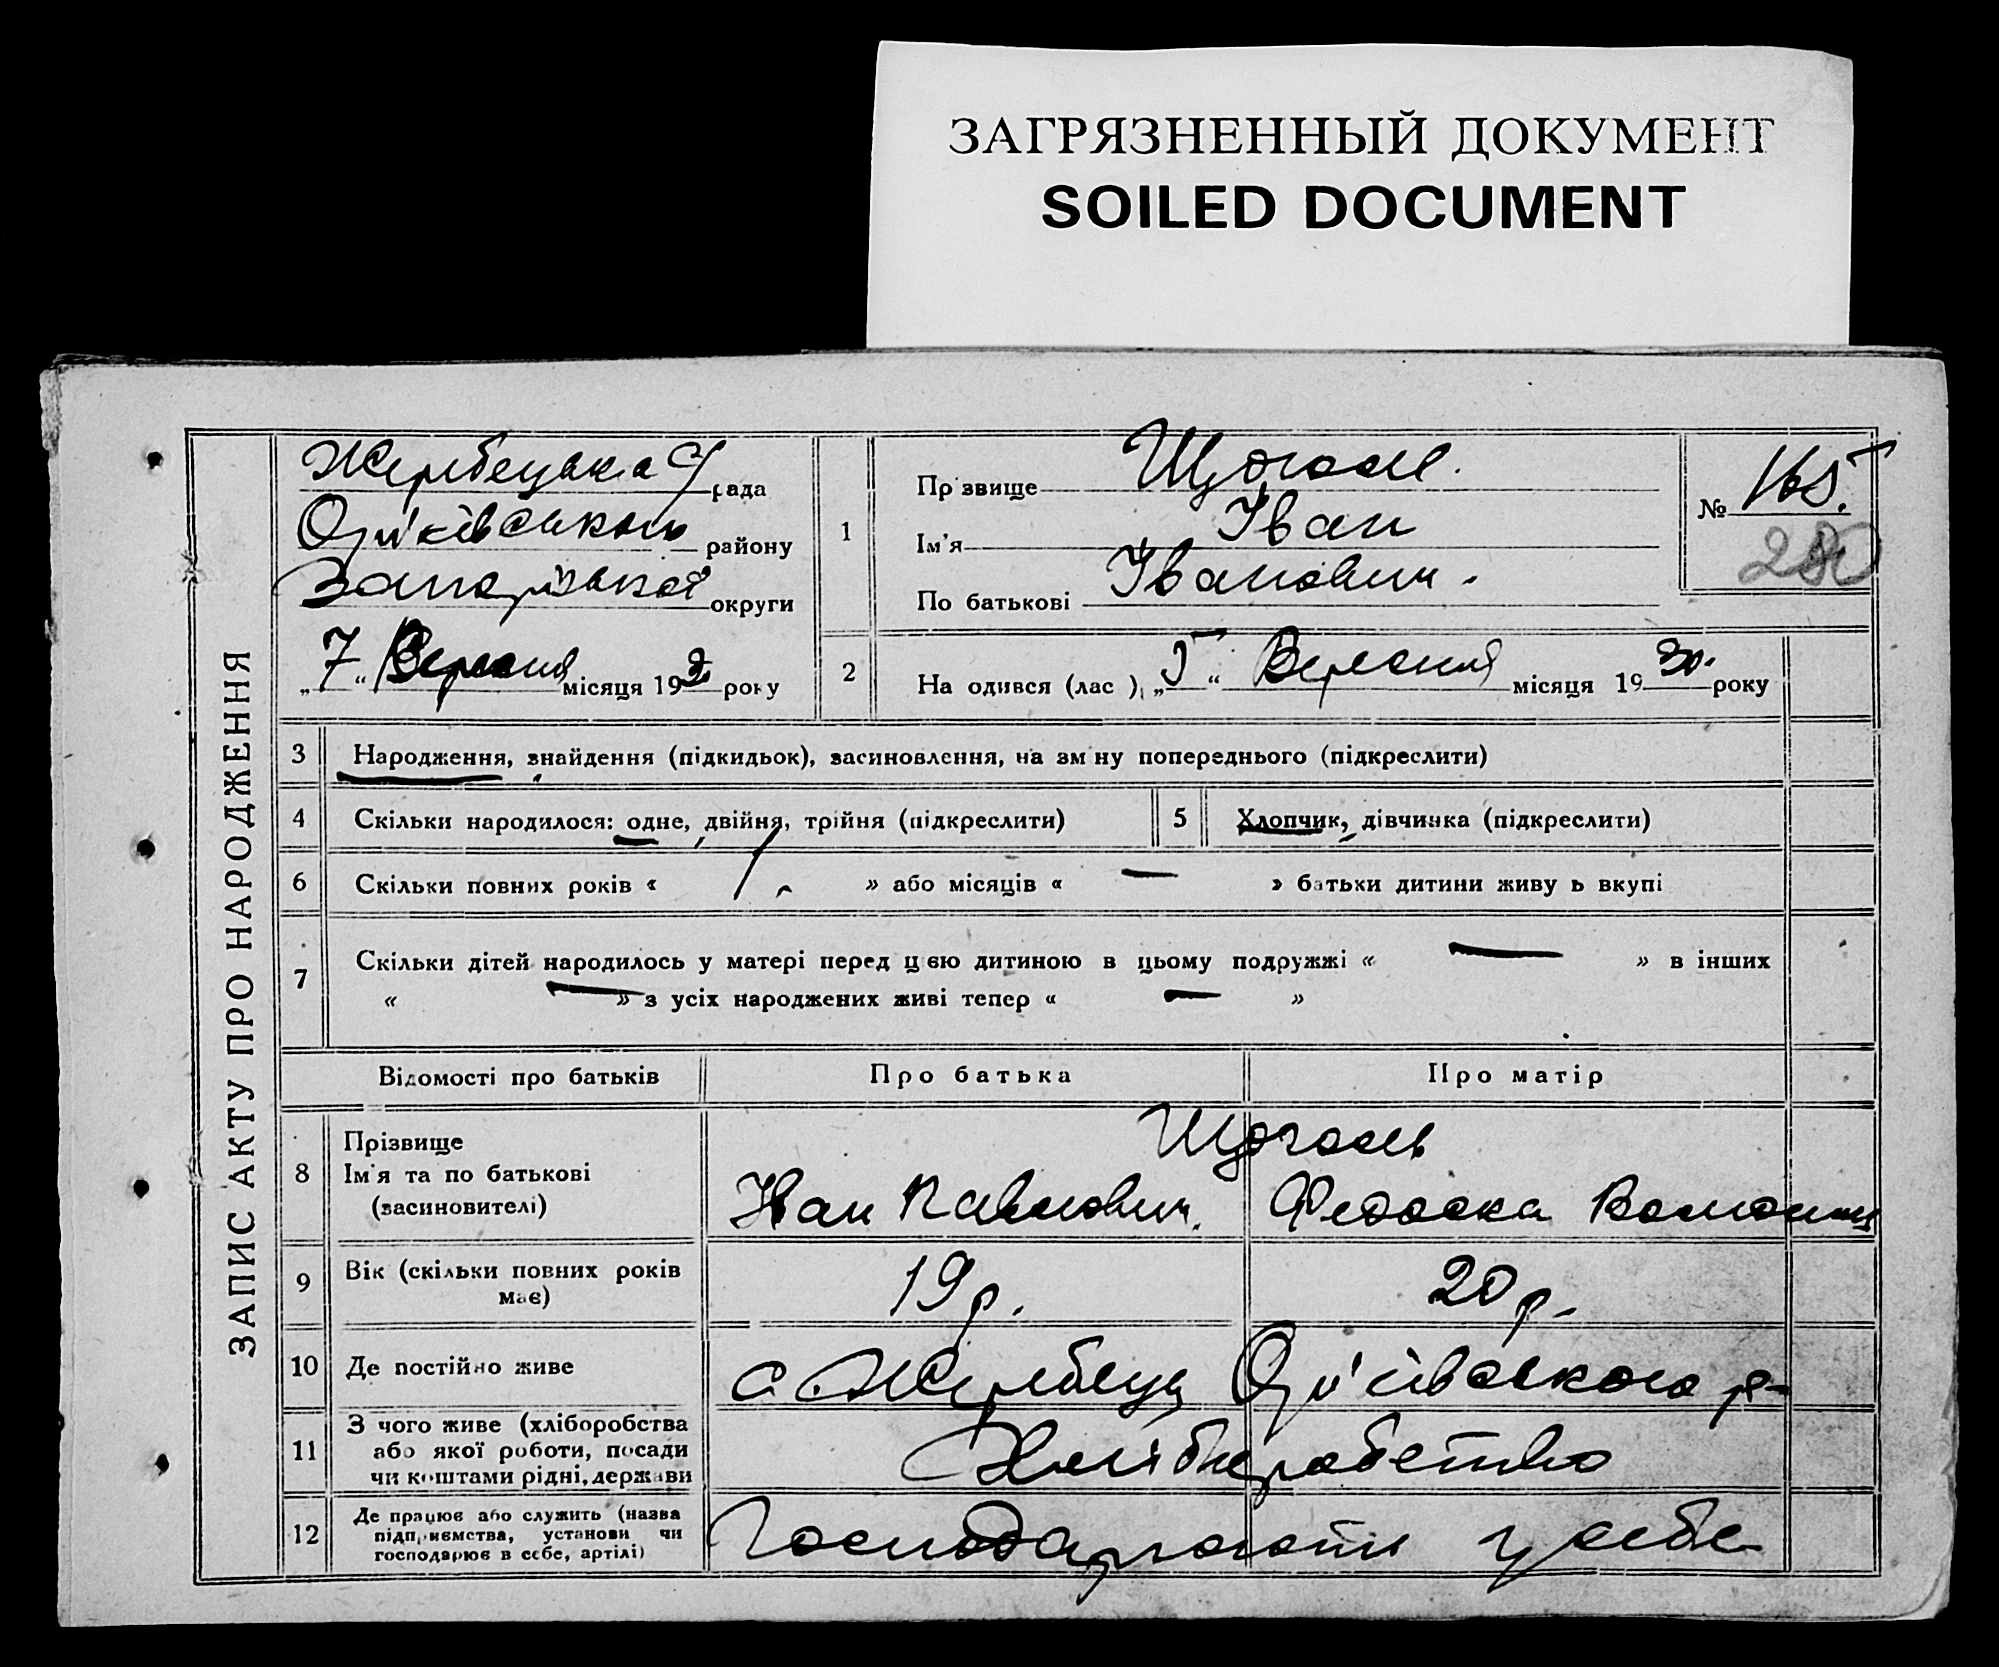 ЗАГРЯЗНЕННЫЙ ДОКУМЕНТ
SOILED DOCUMENT
ЗАПИС АКТУ ПРО НАРОДЖЕННЯ
Жеребецька С/рада
Оріхівського району
Запорізької округи
„7“ Вересня місяця 193 року
1
Прізвище Щоголь
Ім'я Іван
По батькові Іванович.
№ 165.
280
2
На одився (лас ), „5“ Вересня місяця 1930. року
3 Народження, знайдення (підкидьок), засиновлення, на зм ну попереднього (підкреслити)
4 Скільки народилося: одне, двійня, трійня (підкреслити)
5 Хлопчик, дівчинка (підкреслити)
6 Скільки повних років « 1. » або місяців « — » батьки дитини живу ь вкупі
7 Скільки дітей народилось у матері перед цією дитиною в цьому подружжі « — » в інших
« — » з усіх народжених живі тепер « — »
Відомості про батьків Про батька Про матір
8 Прізвище
Ім'я та по батькові
(засиновителі)
Щоголь
Іван Павлович. Федоска
9 Вік (скільки повних років
має)
19 р. 20 р.
10 Де постійно живе с. Жеребець Оріхівського р-
11 З чого живе (хліборобства
або якої роботи, посади
чи коштами рідні, держави
Хліборобство
12 Де працює або служить (назва
підприємства, установи чи
господарює в себе, артілі)
Господарюють у себе